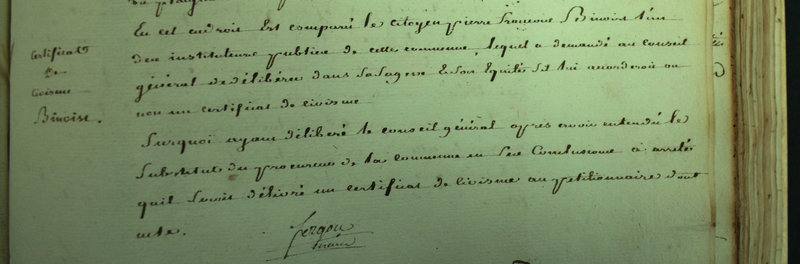 En cet endroit Est comparu le citoyen pierre francois Benoist l'un
certificat
de
civisme
Benoist.
des instituteurs publics de cette commune lequel a demandé au conseil
général de délibérer dans sa sagesse & son Equité s'il lui accorderoit ou
non un certificat de civisme
Surquoi ayant délibéré le conseil général apres avoir entendu le
Substitut du procureur de la commune en ses Conclusions a arrêté
quil Seroit délivré un certificat de civisme au pétitionnaire dont
acte.
fergou
maire